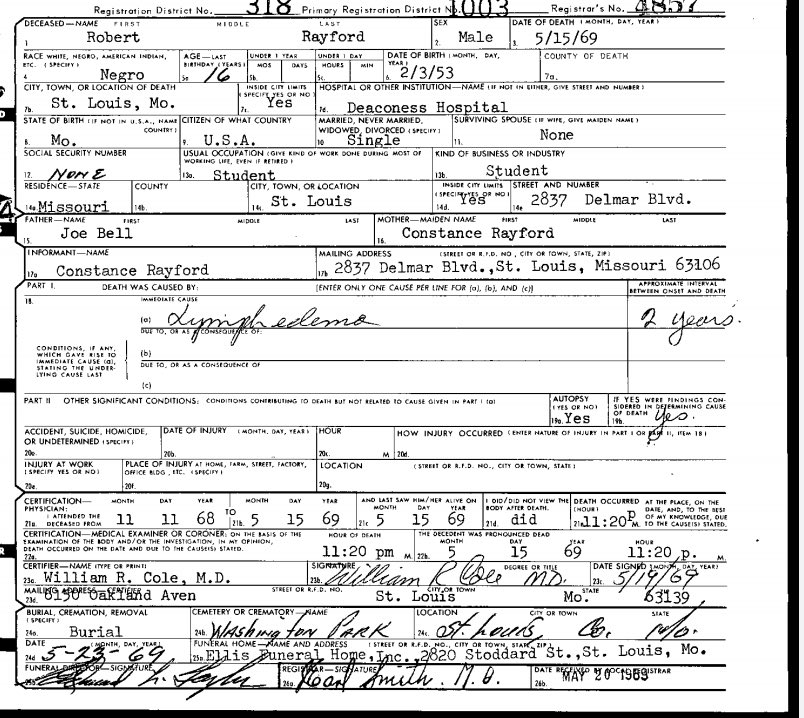 Registration District No. 318 Primary Registration District No. 1003 Registrar's No. 4857
DECEASED—NAME FIRST MIDDLE LAST SEX DATE OF DEATH (MONTH, DAY, YEAR)
1. Robert Rayford 2. Male 3. 5/15/69
RACE WHITE, NEGRO, AMERICAN INDIAN, ETC. (SPECIFY) AGE—LAST BIRTHDAY (YEARS) UNDER 1 YEAR MOS DAYS UNDER 1 DAY HOURS MIN DATE OF BIRTH (MONTH, DAY, YEAR) COUNTY OF DEATH
4. Negro 5a. 16 5b. 5c. 6. 2/3/53 7a.
CITY, TOWN, OR LOCATION OF DEATH INSIDE CITY LIMITS (SPECIFY YES OR NO) HOSPITAL OR OTHER INSTITUTION—NAME (IF NOT IN EITHER, GIVE STREET AND NUMBER)
7b. St. Louis, Mo. 7c. Yes 7d. Deaconess Hospital
STATE OF BIRTH (IF NOT IN U.S.A., NAME COUNTRY) CITIZEN OF WHAT COUNTRY MARRIED, NEVER MARRIED, WIDOWED, DIVORCED (SPECIFY) SURVIVING SPOUSE (IF WIFE, GIVE MAIDEN NAME)
8. Mo. 9. U.S.A. 10. Single 11. None
SOCIAL SECURITY NUMBER USUAL OCCUPATION (GIVE KIND OF WORK DONE DURING MOST OF WORKING LIFE, EVEN IF RETIRED) KIND OF BUSINESS OR INDUSTRY
12. NONE 13a. Student 13b. Student
RESIDENCE—STATE COUNTY CITY, TOWN, OR LOCATION INSIDE CITY LIMITS (SPECIFY YES OR NO) STREET AND NUMBER
14a. Missouri 14b. 14c. St. Louis 14d. Yes 14e. 2837 Delmar Blvd.
FATHER—NAME FIRST MIDDLE LAST MOTHER—MAIDEN NAME FIRST MIDDLE LAST
15. Joe Bell 16. Constance Rayford
INFORMANT—NAME MAILING ADDRESS (STREET OR R.F.D. NO., CITY OR TOWN, STATE, ZIP)
17a. Constance Rayford 17b. 2837 Delmar Blvd.,St. Louis, Missouri 63106
PART I. DEATH WAS CAUSED BY: [ENTER ONLY ONE CAUSE PER LINE FOR (a), (b), AND (c)] APPROXIMATE INTERVAL BETWEEN ONSET AND DEATH
18. IMMEDIATE CAUSE
(a) Lymphedema 2 years.
DUE TO, OR AS A CONSEQUENCE OF:
CONDITIONS, IF ANY, WHICH GAVE RISE TO IMMEDIATE CAUSE (a), STATING THE UNDERLYING CAUSE LAST
(b)
DUE TO, OR AS A CONSEQUENCE OF
(c)
PART II OTHER SIGNIFICANT CONDITIONS: CONDITIONS CONTRIBUTING TO DEATH BUT NOT RELATED TO CAUSE GIVEN IN PART I (a) AUTOPSY (YES OR NO) IF YES WERE FINDINGS CONSIDERED IN DETERMINING CAUSE OF DEATH
19a. Yes 19b. Yes.
ACCIDENT, SUICIDE, HOMICIDE, OR UNDETERMINED (SPECIFY) DATE OF INJURY (MONTH, DAY, YEAR) HOUR HOW INJURY OCCURRED (ENTER NATURE OF INJURY IN PART I OR PART II, ITEM 18)
20a. 20b. 20c. M 20d.
INJURY AT WORK (SPECIFY YES OR NO) PLACE OF INJURY AT HOME, FARM, STREET, FACTORY, OFFICE BLDG., ETC. (SPECIFY) LOCATION (STREET OR R.F.D. NO., CITY OR TOWN, STATE)
20e. 20f. 20g.
CERTIFICATION—PHYSICIAN: I ATTENDED THE DECEASED FROM MONTH DAY YEAR TO MONTH DAY YEAR AND LAST SAW HIM/HER ALIVE ON MONTH DAY YEAR I DID/DID NOT VIEW THE BODY AFTER DEATH. DEATH OCCURRED (HOUR) AT THE PLACE, ON THE DATE, AND, TO THE BEST OF MY KNOWLEDGE, DUE TO THE CAUSE(S) STATED.
21a. 11 11 68 21b. 5 15 69 21c. 5 15 69 21d. did 21e. 11:20 P M.
CERTIFICATION—MEDICAL EXAMINER OR CORONER: ON THE BASIS OF THE EXAMINATION OF THE BODY AND/OR THE INVESTIGATION, IN MY OPINION, DEATH OCCURRED ON THE DATE AND DUE TO THE CAUSE(S) STATED. HOUR OF DEATH THE DECEDENT WAS PRONOUNCED DEAD MONTH DAY YEAR HOUR
22a. 11:20 pm M. 22b. 5 15 69 11:20 p. M.
CERTIFIER—NAME (TYPE OR PRINT) SIGNATURE DEGREE OR TITLE DATE SIGNED (MONTH, DAY, YEAR)
23a. William R. Cole, M.D. 23b. William R Cole M.D. 23c. 5/19/69
MAILING ADDRESS—CERTIFIER STREET OR R.F.D. NO. CITY OR TOWN STATE
23d. 6150 Oakland Aven St. Louis Mo. 63139
BURIAL, CREMATION, REMOVAL (SPECIFY) CEMETERY OR CREMATORY—NAME LOCATION CITY OR TOWN STATE
24a. Burial 24b. WASHINGTON PARK 24c. St. Louis Co. Mo.
DATE (MONTH, DAY, YEAR) FUNERAL HOME—NAME AND ADDRESS (STREET OR R.F.D. NO., CITY OR TOWN, STATE, ZIP)
24d. 5-23-69 25a. Ellis Funeral Home,Inc.,2820 Stoddard St.,St. Louis, Mo.
FUNERAL DIRECTOR—SIGNATURE REGISTRAR—SIGNATURE DATE RECEIVED BY LOCAL REGISTRAR
25b. 26a. Smith. M.D. 26b. MAY 20 1969